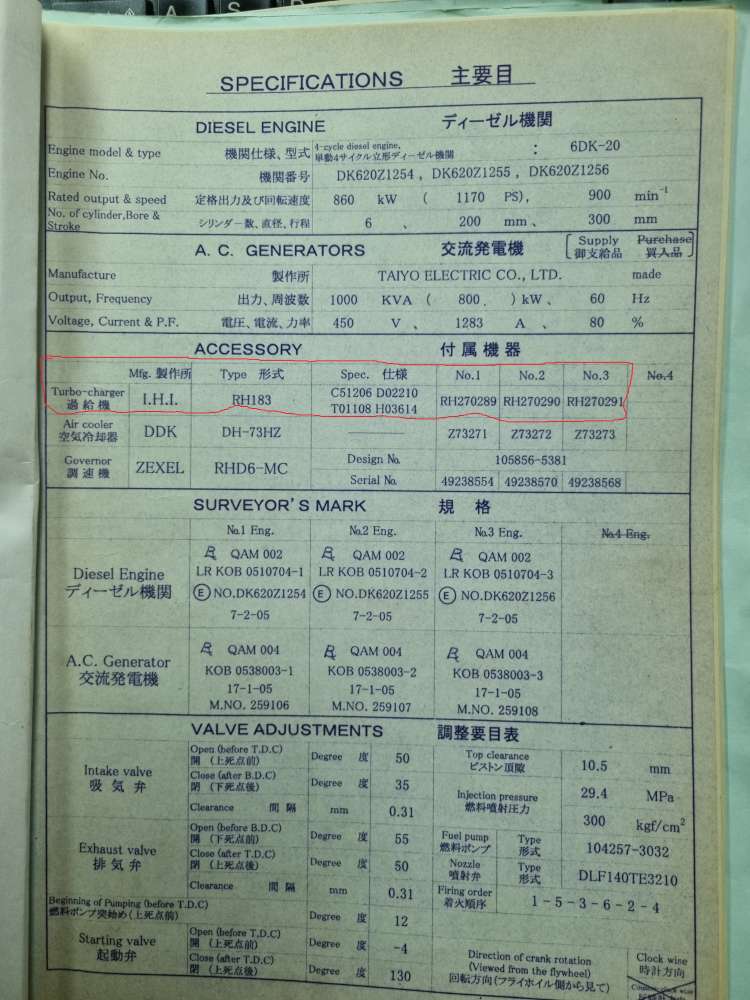 A S
SPECIFICATIONS 主要目
DIESEL ENGINE ディーゼル機関
Engine model & type 機関仕様、型式 4-cycle diesel engine, 単動4サイクル立形ディーゼル機関 : 6DK-20
Engine No. 機関番号 DK620Z1254 , DK620Z1255 , DK620Z1256
Rated output & speed 定格出力及び回転速度 860 kW ( 1170 PS), 900 min⁻¹
No. of cylinder,Bore & Stroke シリンダー数、直径、行程 6 、 200 mm、 300 mm
A. C. GENERATORS 交流発電機 Supply 御支給品 Purchase 買入品
Manufacture 製作所 TAIYO ELECTRIC CO., LTD. made
Output, Frequency 出力、周波数 1000 KVA ( 800 . ) kW、 60 Hz
Voltage, Current & P.F. 電圧、電流、力率 450 V、 1283 A 、 80 %
ACCESSORY 付属機器
Mfg. 製作所 Type 形式 Spec. 仕様 No.1 No.2 No.3 No.4
Turbo-charger 過給機 I.H.I. RH183 C51206 D02210 T01108 H03614 RH270289 RH270290 RH270291
Air cooler 空気冷却器 DDK DH-73HZ Z73271 Z73272 Z73273
Governor 調速機 ZEXEL RHD6-MC Design No. 105856-5381
Serial No. 49238554 49238570 49238568
SURVEYOR'S MARK 規格
No.1 Eng. No.2 Eng. No.3 Eng. No.4 Eng.
Diesel Engine ディーゼル機関
QAM 002 QAM 002 QAM 002
LR KOB 0510704-1 LR KOB 0510704-2 LR KOB 0510704-3
Ⓔ NO.DK620Z1254 Ⓔ NO.DK620Z1255 Ⓔ NO.DK620Z1256
7-2-05 7-2-05 7-2-05
A.C. Generator 交流発電機
QAM 004 QAM 004 QAM 004
KOB 0538003-1 KOB 0538003-2 KOB 0538003-3
17-1-05 17-1-05 17-1-05
M.NO. 259106 M.NO. 259107 M.NO. 259108
VALVE ADJUSTMENTS 調整要目表
Intake valve 吸気弁
Open (before T.D.C) 開 (上死点前) Degree 度 50
Close (after B.D.C) 閉 (下死点後) Degree 度 35
Clearance 間隔 mm 0.31
Exhaust valve 排気弁
Open (before B.D.C) 開 (下死点前) Degree 度 55
Close (after T.D.C) 閉 (上死点後) Degree 度 50
Clearance 間隔 mm 0.31
Beginning of Pumping (before T.D.C) 燃料ポンプ突始め(上死点前) Degree 度 12
Starting valve 起動弁
Open (before T.D.C) 開 (上死点前) Degree 度 -4
Close (after T.D.C) 閉 (上死点後) Degree 度 130
Top clearance ピストン頂隙 10.5 mm
Injection pressure 燃料噴射圧力 29.4 MPa
300 kgf/cm²
Fuel pump 燃料ポンプ Type 形式 104257-3032
Nozzle 噴射弁 Type 形式 DLF140TE3210
Firing order 着火順序 1-5-3-6-2-4
Direction of crank rotation (Viewed from the flywheel) 回転方向(フライホイル側から見て)
Clock wise 時計方向